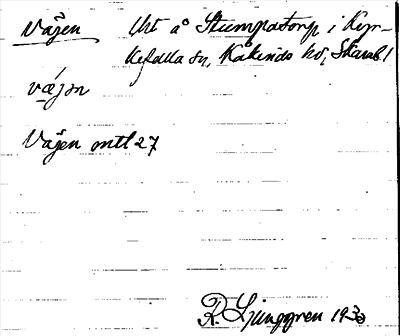 Vägen Uht å Stumpatorp i Kyr-
kefalla sn, Kåkinds hd, Skarab. l
vä́jən
Vägen mtl 27
R. Ljunggren 1930